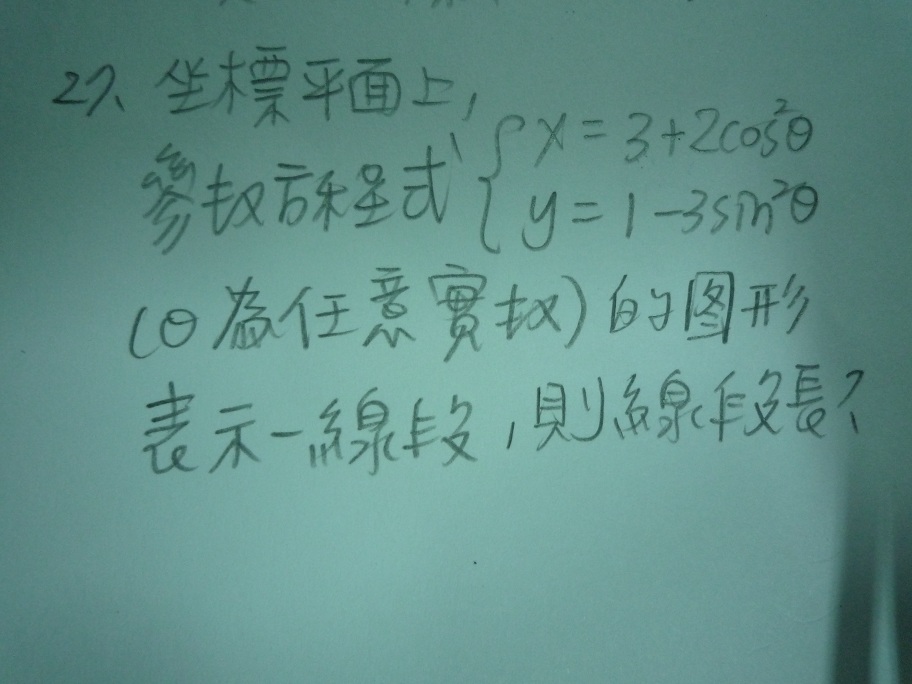 27、坐標平面上,
參数方程式{x=3+2cos²θ
y=1-3sin²θ
(θ為任意實数)的图形
表示一線段,則線段長?